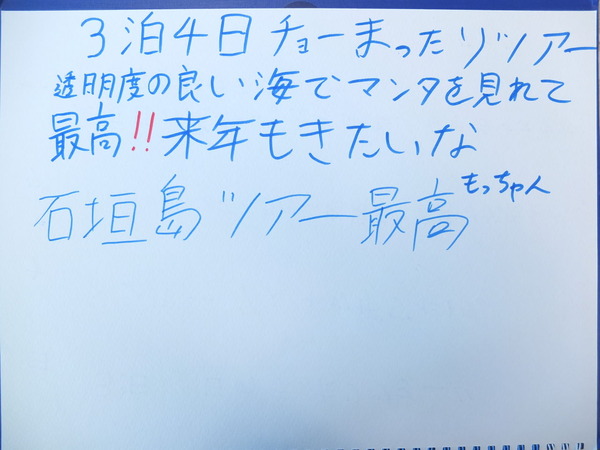 3泊4日チョーまったりツアー
透明度の良い海でマンタを見れて
最高!!来年もきたいな
石垣島ツアー最高
もっちゃん